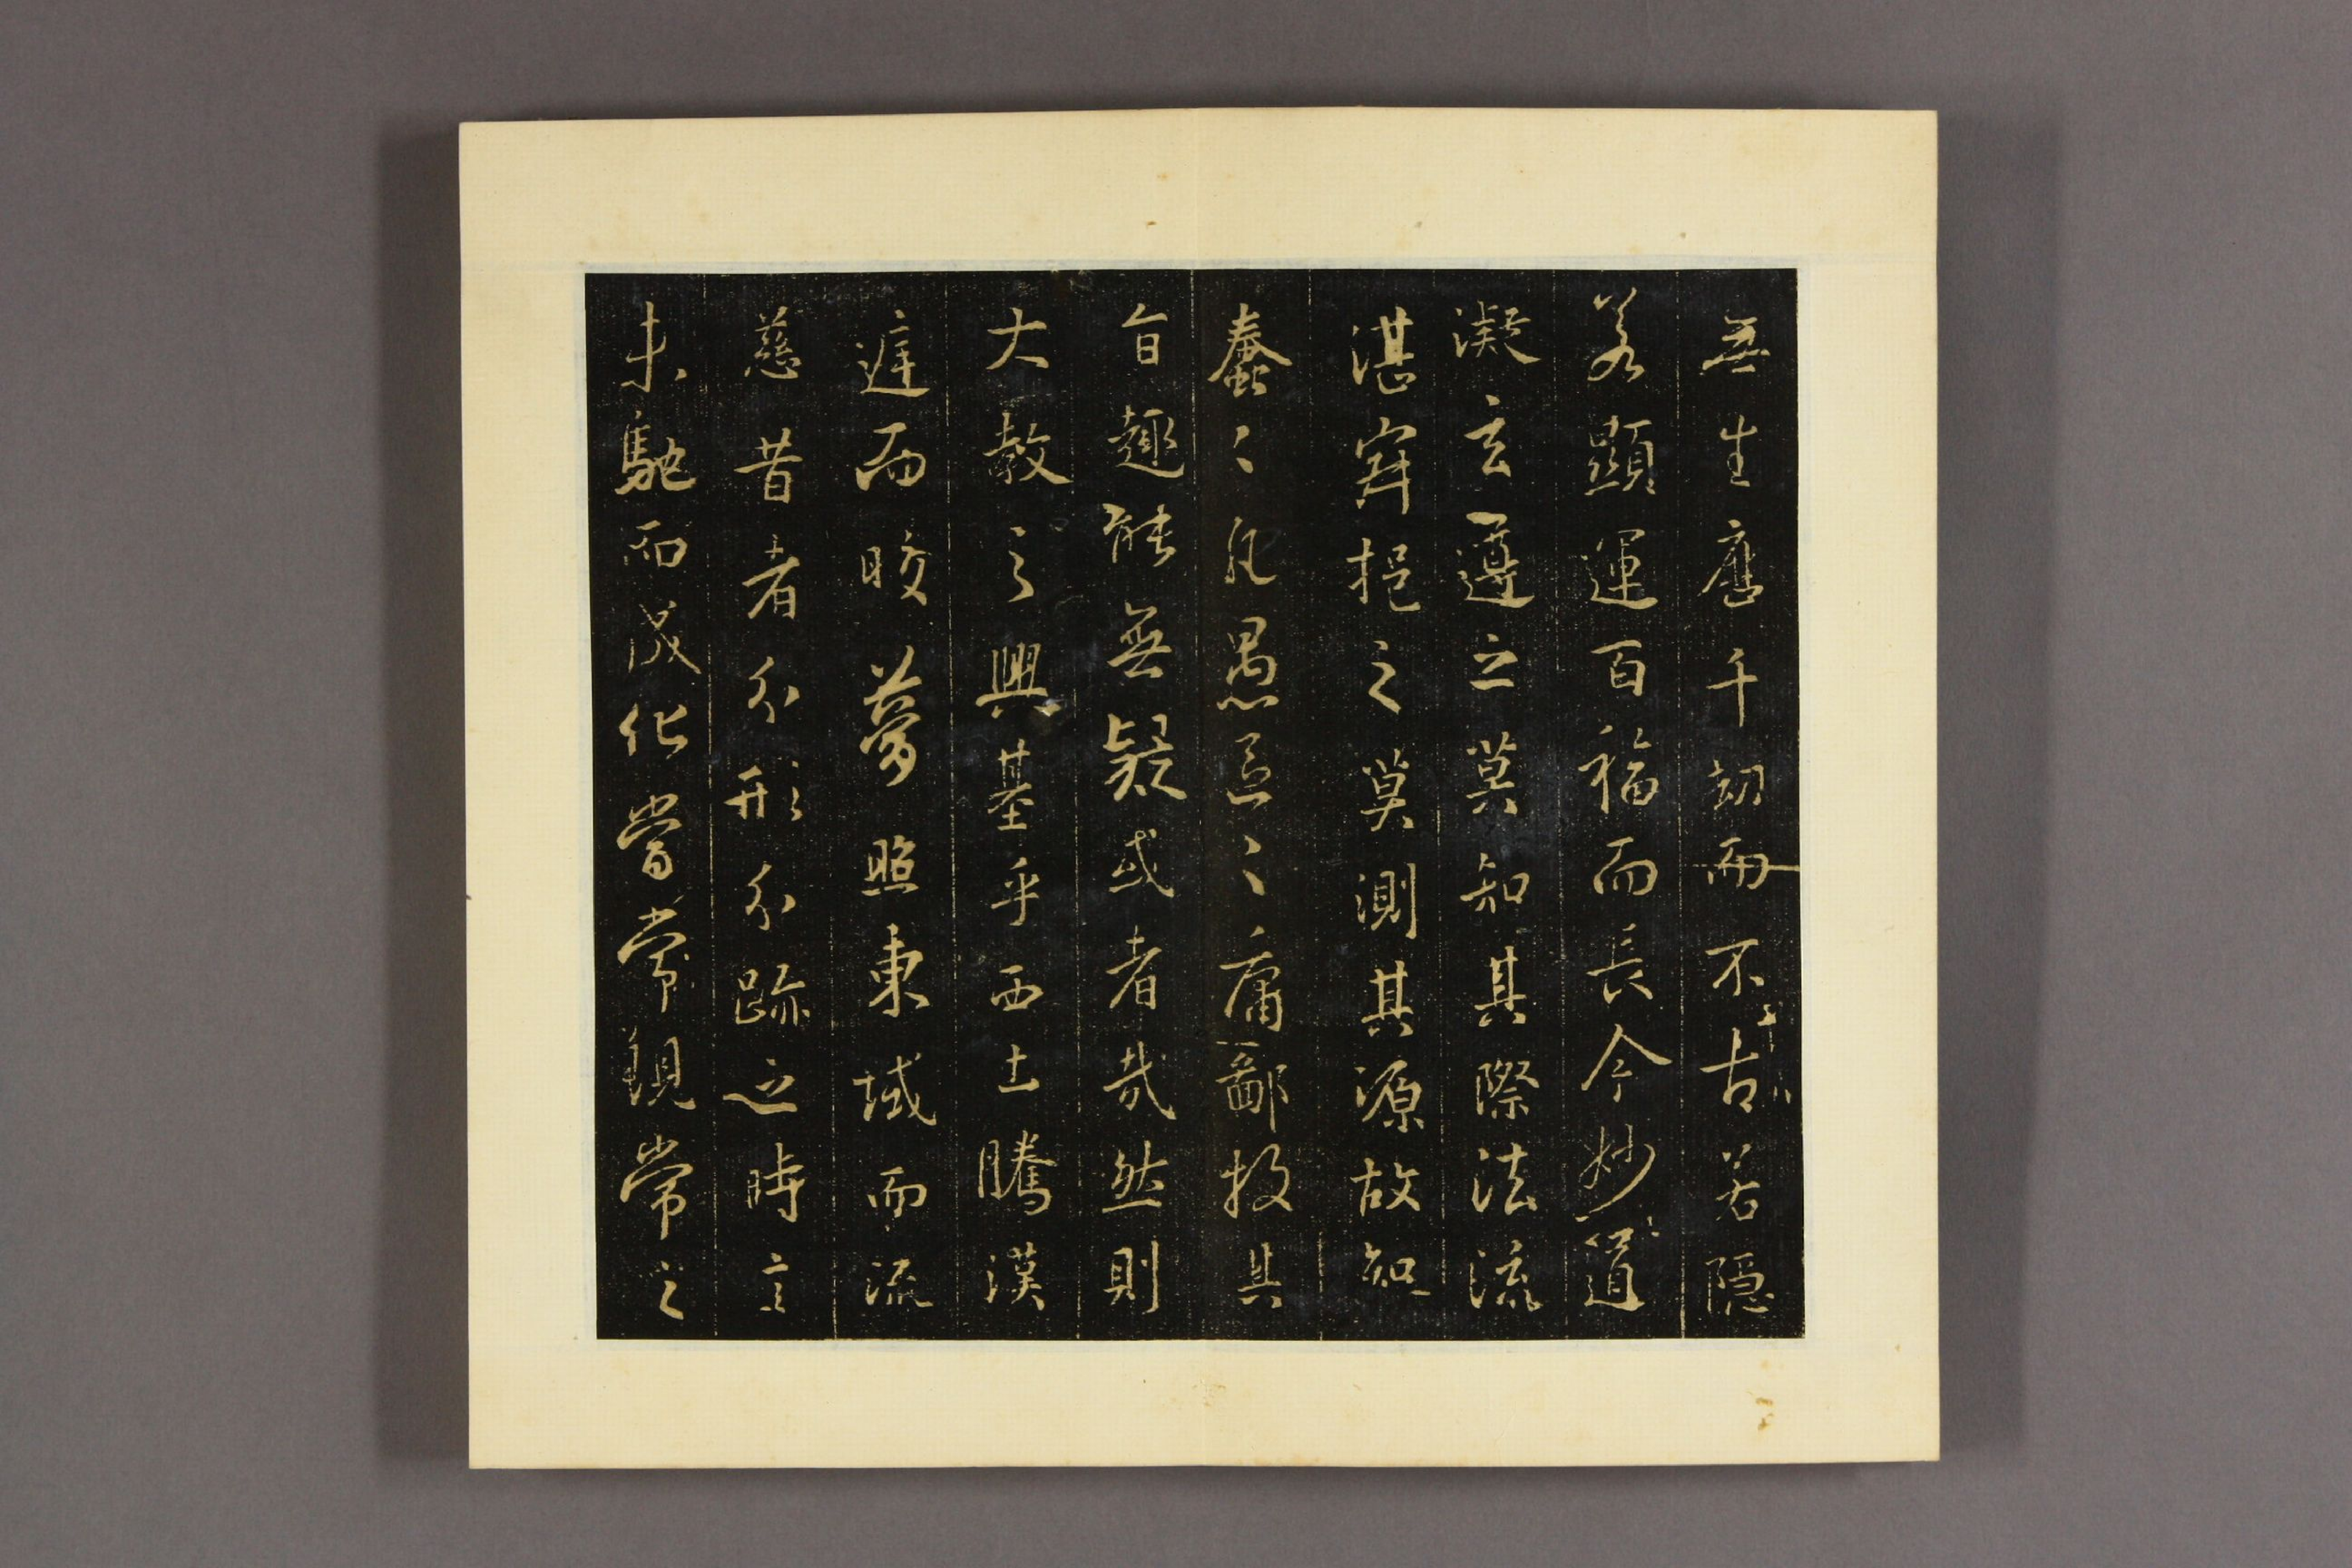 無生歷千劫而不古若隱
若顯運百福而長今妙道
凝玄遵之莫知其際法流
湛寂挹之莫測其源故知
蠢〻凡愚區〻庸鄙投其
旨趣能無疑或者哉然則
大教之興基乎西土騰漢
庭而皎夢照東域而流
慈昔者分形分跡之時言
未馳而成化當常現常之